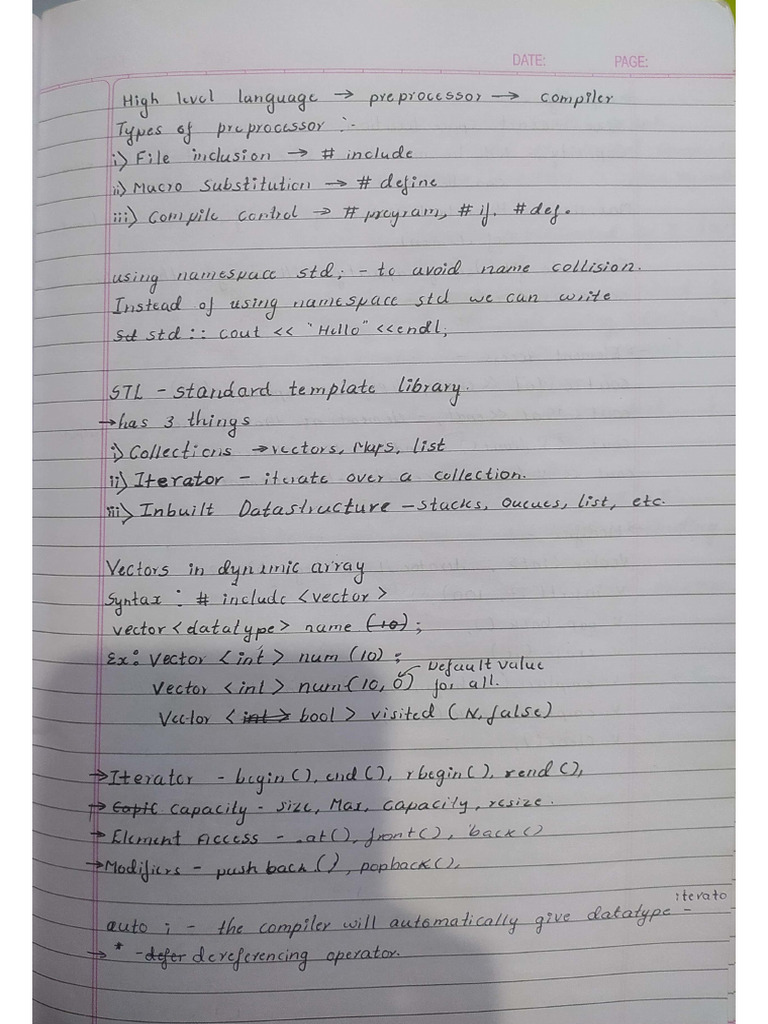 DATE: PAGE:
High level language → preprocessor → compiler
Types of preprocessor :-
i) File inclusion → # include
ii) Macro Substitution → # define
iii) Compile control → # program, # if. # def.
using namespace std; - to avoid name collision.
Instead of using namespace std we can write
Sd std :: cout << "Hello" <<endl;
STL - standard template library.
→has 3 things
i) Collections →vectors, Maps, list
ii) Iterator - iterate over a collection.
iii) Inbuilt Datastructure - stacks, Queues, list, etc.
Vectors in dynamic array
Syntax : # include <vector>
vector <datatype> name (10) ;
Ex: Vector <int> num (10) ;
Vector <int> num(10, 0) Default value for all.
Vector <int> bool > visited (N, false)
→Iterator - begin(), end(), rbegin(), rend(),
→Capic Capacity - size, Max, capacity, resize.
→Element Access - .at(), front(), back()
→Modifiers - push back(), popback(),
iterato
auto ; - the compiler will automatically give datatype -
→ * - defer dereferencing operator.